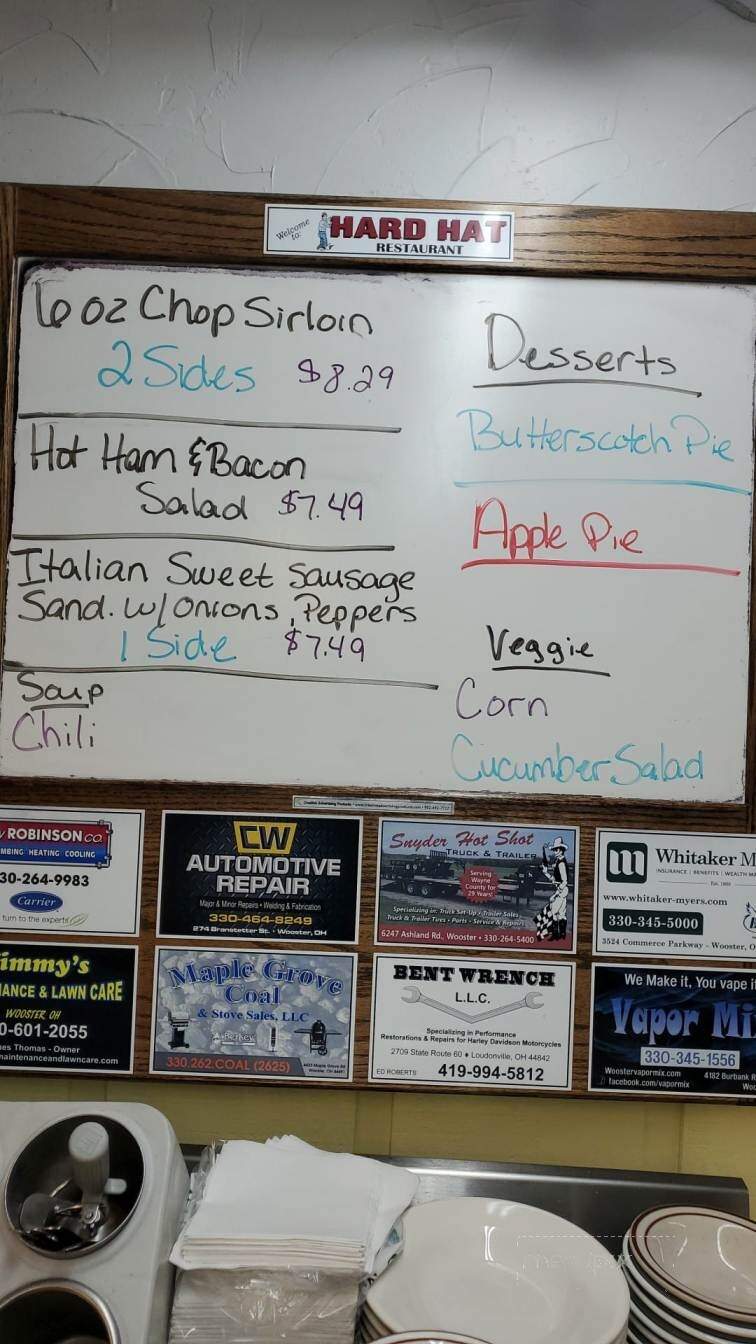 Welcome to:
HARD HAT
RESTAURANT
6 oz Chop Sirloin
2 Sides $8.29
Hot Ham & Bacon
Salad $7.49
Italian Sweet Sausage
Sand. w/ onions, Peppers
1 Side $7.49
Soup
Chili
Desserts
Butterscotch Pie
Apple Pie
Veggie
Corn
Cucumber Salad
ROBINSON CO.
MBING HEATING COOLING
30-264-9983
Carrier
turn to the experts
CW
AUTOMOTIVE
REPAIR
Major & Minor Repairs • Welding & Fabrication
330-464-8249
274 Branstetter St. • Wooster, OH
Snyder Hot Shot
TRUCK & TRAILER
Serving
Wayne
County for
29 Years!
Specializing in: Truck Set-Up • Trailer Sales
Truck & Trailer Tires • Parts • Service & Repairs
6247 Ashland Rd., Wooster • 330-264-5400
Whitaker M
INSURANCE | BENEFITS | WEALTH MA
www.whitaker-myers.com
330-345-5000
3524 Commerce Parkway - Wooster, O
immy's
NANCE & LAWN CARE
WOOSTER, OH
0-601-2055
es Thomas - Owner
maintenanceandlawncare.com
Maple Grove
Coal
& Stove Sales, LLC
330.262.COAL (2625)
BENT WRENCH
L.L.C.
Specializing in Performance
Restorations & Repairs for Harley Davidson Motorcycles
2709 State Route 60 ♦ Loudonville, OH 44842
ED ROBERTS 419-994-5812
We Make it, You vape i
Vapor Mi
330-345-1556
Woostervapormix.com
facebook.com/vapormix
4182 Burbank R
Woo